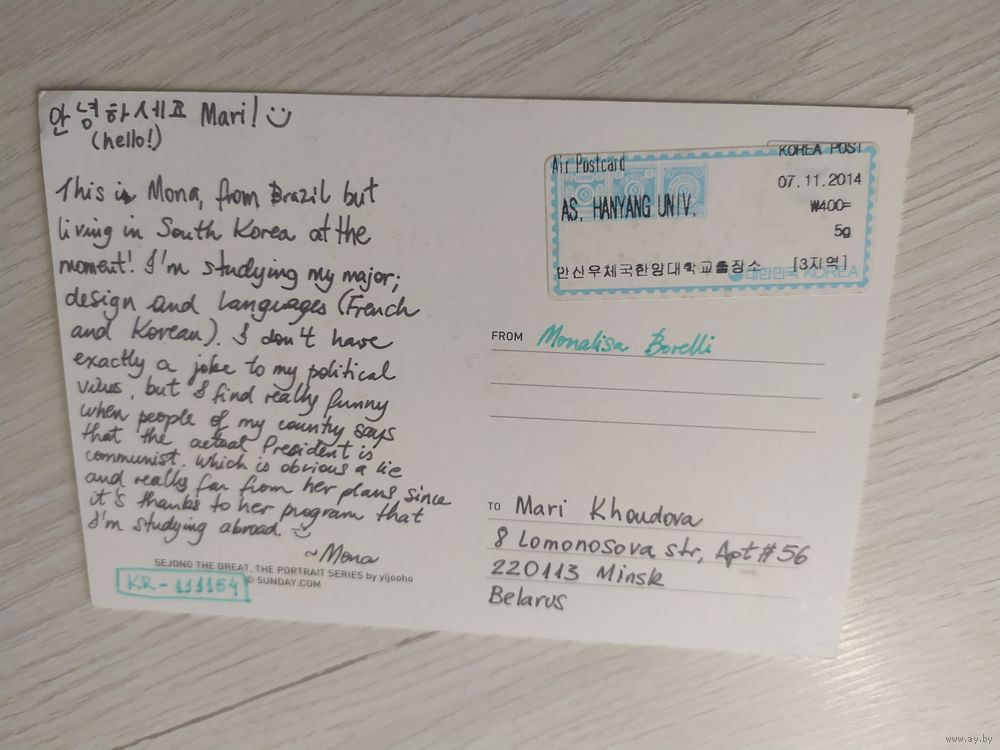 안녕하세요 Mari! :)
(hello!)
This is Mona, from Brazil but
living in South Korea at the
moment! I'm studying my major;
design and languages (French
and Korean). I don't have
exactly a joke to my political
views, but I find really funny
when people of my country says
that the actual President is
communist. Which is obvious a lie
and really far from her plans since
it's thanks to her program that
I'm studying abroad. :)
~Mona
SEJONG THE GREAT, THE PORTRAIT SERIES by yijooho
© 5UNDAY.COM
KR-111154
Air Postcard
KOREA POST
07.11.2014
AS, HANYANG UNIV.
₩400=
5g
안산우체국한양대학교출장소 [3지역]
대한민국 KOREA
FROM Monalisa Borelli
TO Mari Khoudova
8 Lomonosova str, Apt #56
220113 Minsk
Belarus
www.ay.by